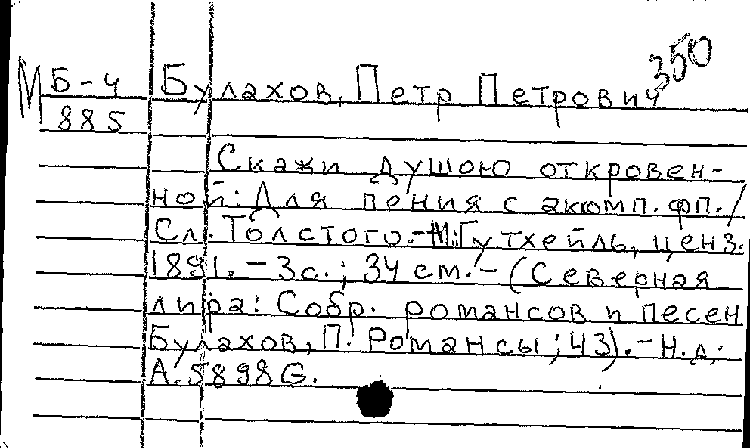 350
М Б-4 Булахов, Петр Петрович
885
Скажи душою откровен-
ной: Для пения с акомп. фп./
Сл. Толстого.-М.: Гутхейль, ценз.
1881. - 3с.; 34 см. - (Северная
лира: Собр. романсов и песен
Булахов, П. Романсы; 43). - Н.д.:
А.5898G.